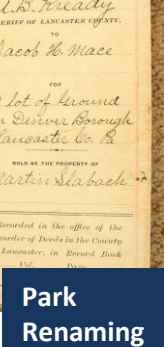 A.B. Kready
SHERIFF OF LANCASTER COUNTY.
TO
Jacob H. Mace
FOR
lot of Ground
Denver Borough
Lancaster Co. Pa
SOLD AS THE PROPERTY OF
Martin Slabach
Recorded in the office of the
Recorder of Deeds in the County
Lancaster, in Record Book
Park
Renaming